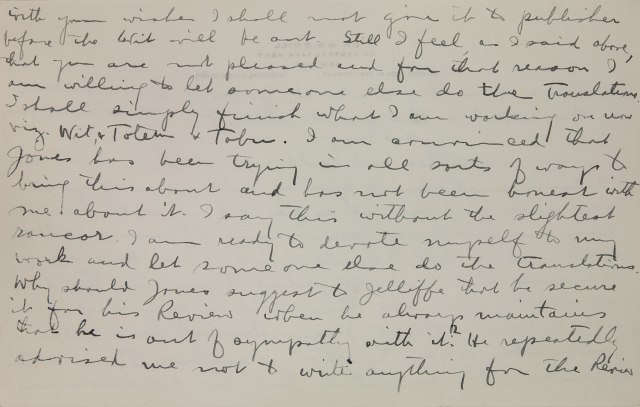 with your wishes I shall not give it to publisher
before the Wit will be out. Still I feel, as I said above,
that you are not pleased and for that reason I
am willing to let someone else do the translations.
I shall simply finish what I am working on now
viz. Wit, & Totem & Tabu. I am convinced that
Jones has been trying in all sorts of ways to
bring this about and has not been honest with
me about it. I say this without the slightest
rancor. I am ready to devote myself to my
work and let someone else do the translations.
Why should Jones suggest to Jelliffe that he secure
it for his Review when he always maintains
that he is out of sympathy with it? He repeatedly
advised me not to write anything for the Review